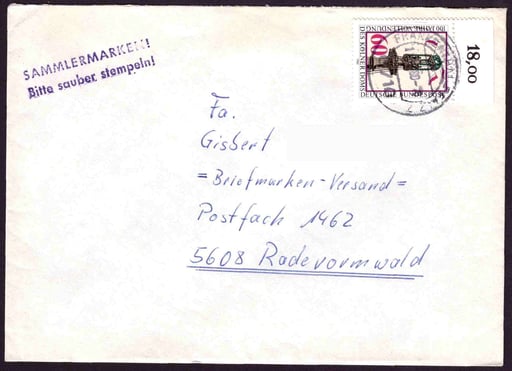 SAMMLERMARKEN!
Bitte sauber stempeln!
60
100 JAHRE VOLLENDUNG
DES KÖLNER DOMS
DEUTSCHE BUNDESPOST
18,00
FRANKFURT
Fa.
Gisbert
=Briefmarken-Versand=
Postfach 1462
5608 Radevormwald